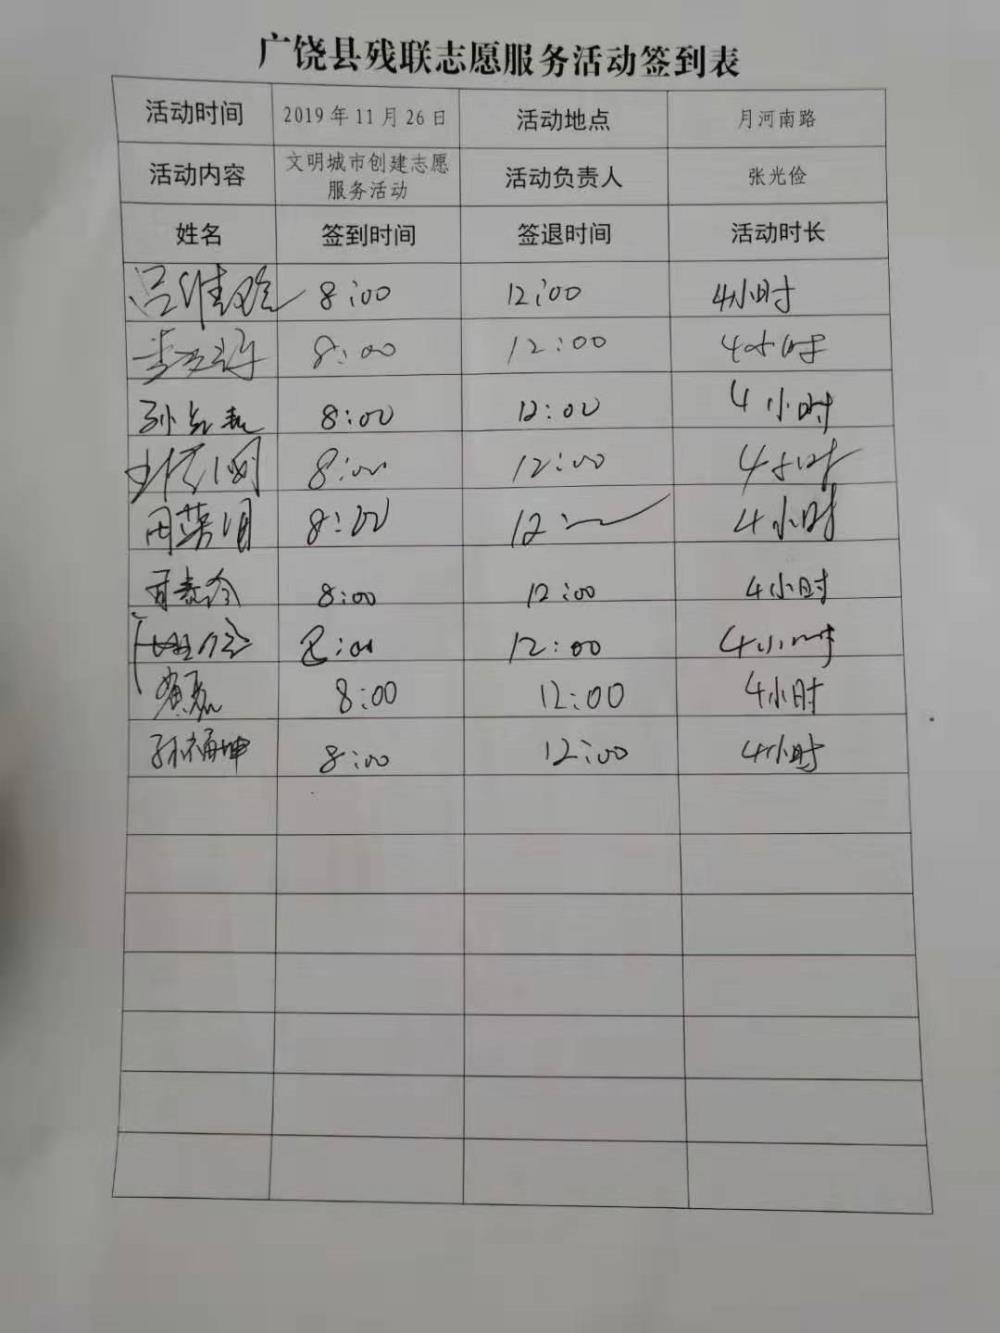 广饶县残联志愿服务活动签到表
活动时间 2019年11月26日 活动地点 月河南路
活动内容 文明城市创建志愿服务活动 活动负责人 张光俭
姓名 签到时间 签退时间 活动时长
吕维 8:00 12:00 4小时
李 8:00 12:00 4小时
孙 8:00 12:00 4小时
8:00 12:00 4小时
周荣娟 8:00 12:00 4小时
8:00 12:00 4小时
8:00 12:00 4小时
黄磊 8:00 12:00 4小时
孙福坤 8:00 12:00 4小时